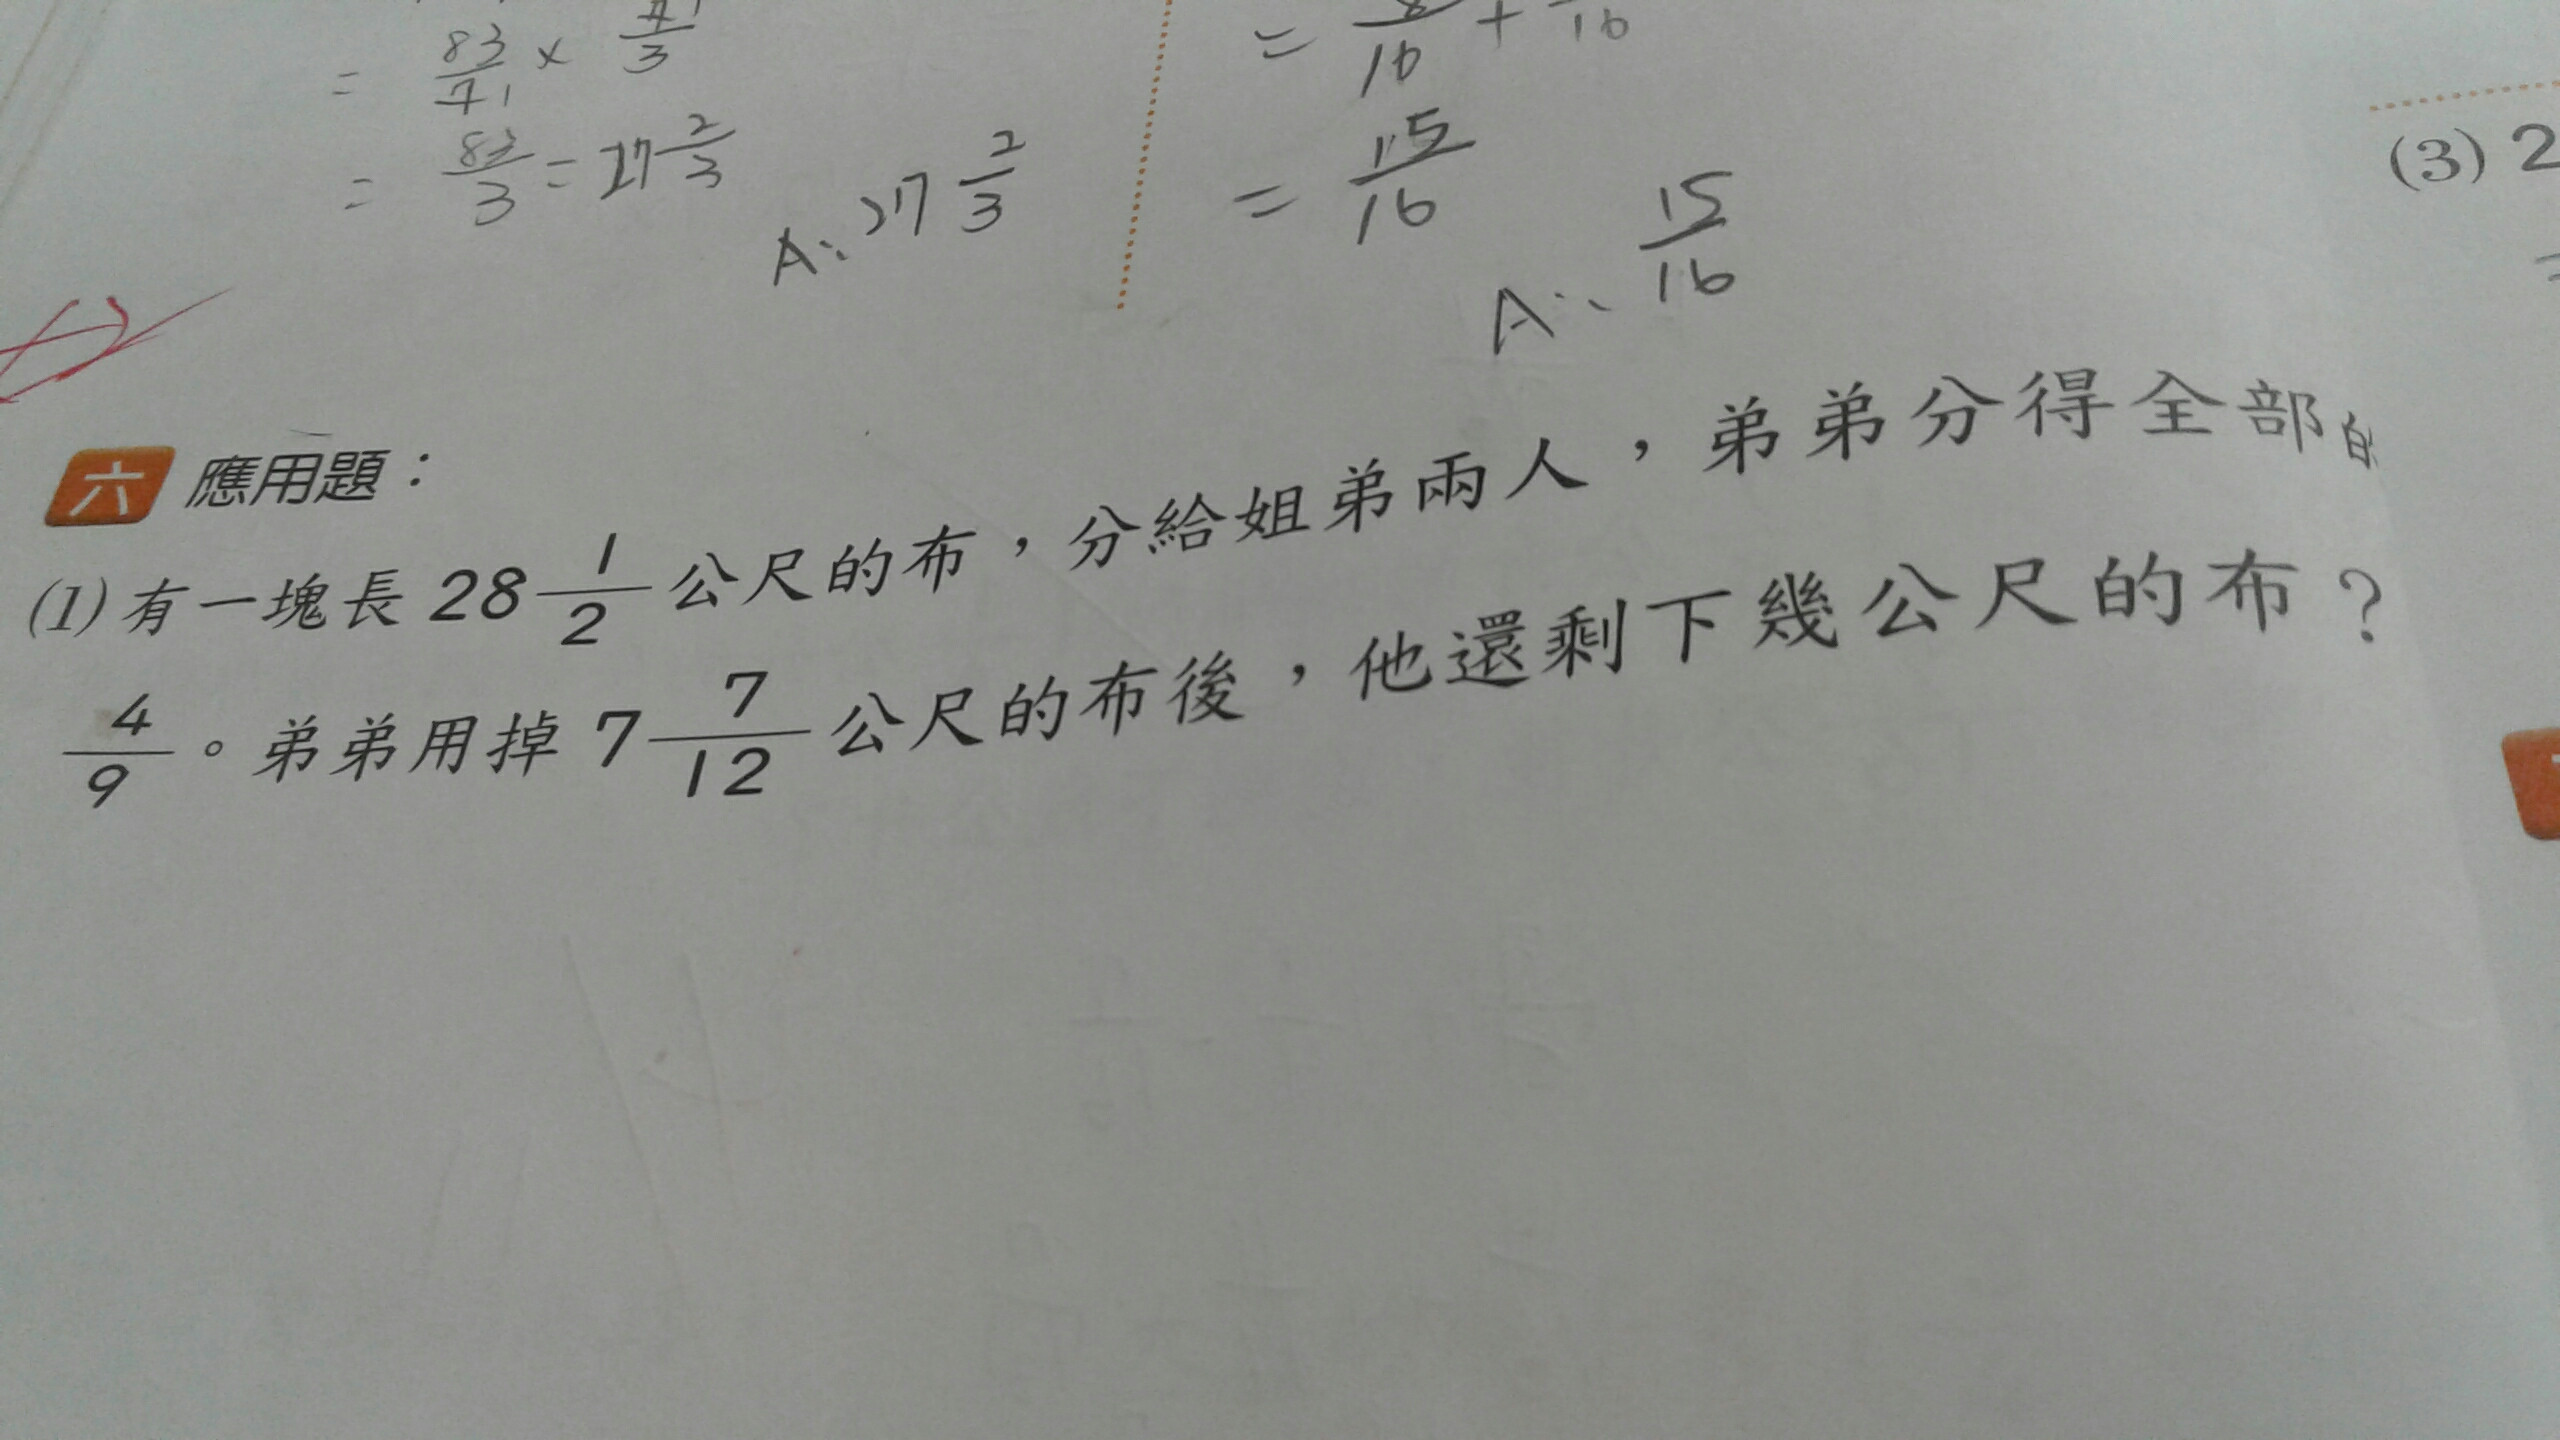 = 83/4 × 4/3
= 83/3 = 27 2/3
A: 27 2/3
= 8/16 + /16
= 15/16
A: 15/16
(3) 2
六 應用題：
(1) 有一塊長 28 1/2 公尺的布，分給姐弟兩人，弟弟分得全部的
4/9。弟弟用掉 7 7/12 公尺的布後，他還剩下幾公尺的布？